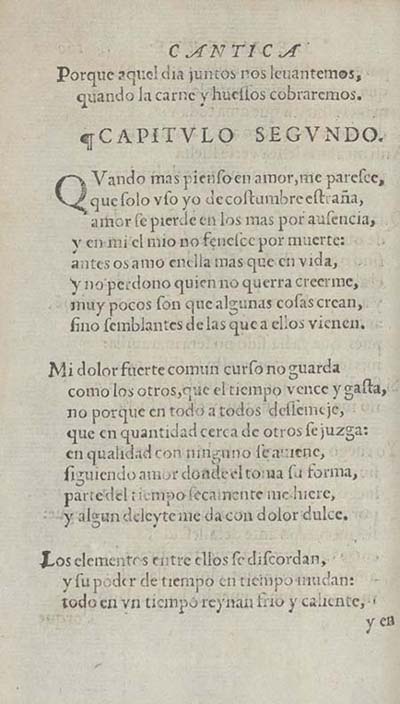 CANTICA
Porque aquel dia juntos nos leuantemos,
quando la carne y huessos cobraremos.
¶CAPITVLO SEGVNDO.
QVando mas pienso en amor, me paresce,
que solo vso yo de costumbre estraña,
amor se pierde en los mas por ausencia,
y en mi el mio no fenesce por muerte:
antes os amo en ella mas que en vida,
y no perdono quien no querra creerme,
muy pocos son que algunas cosas crean,
sino semblantes de las que a ellos vienen.
Mi dolor fuerte comun curso no guarda
como los otros, que el tiempo vence y gasta,
no porque en todo a todos dessemeje,
que en quantidad cerca de otros se juzga:
en qualidad con ninguno se auiene,
siguiendo amor donde el toma su forma,
parte del tiempo secamente me hiere,
y algun deleyte me da con dolor dulce.
Los elementos entre ellos se discordan,
y su poder de tiempo en tiempo mudan:
todo en vn tiempo reynan frio y caliente,
y en